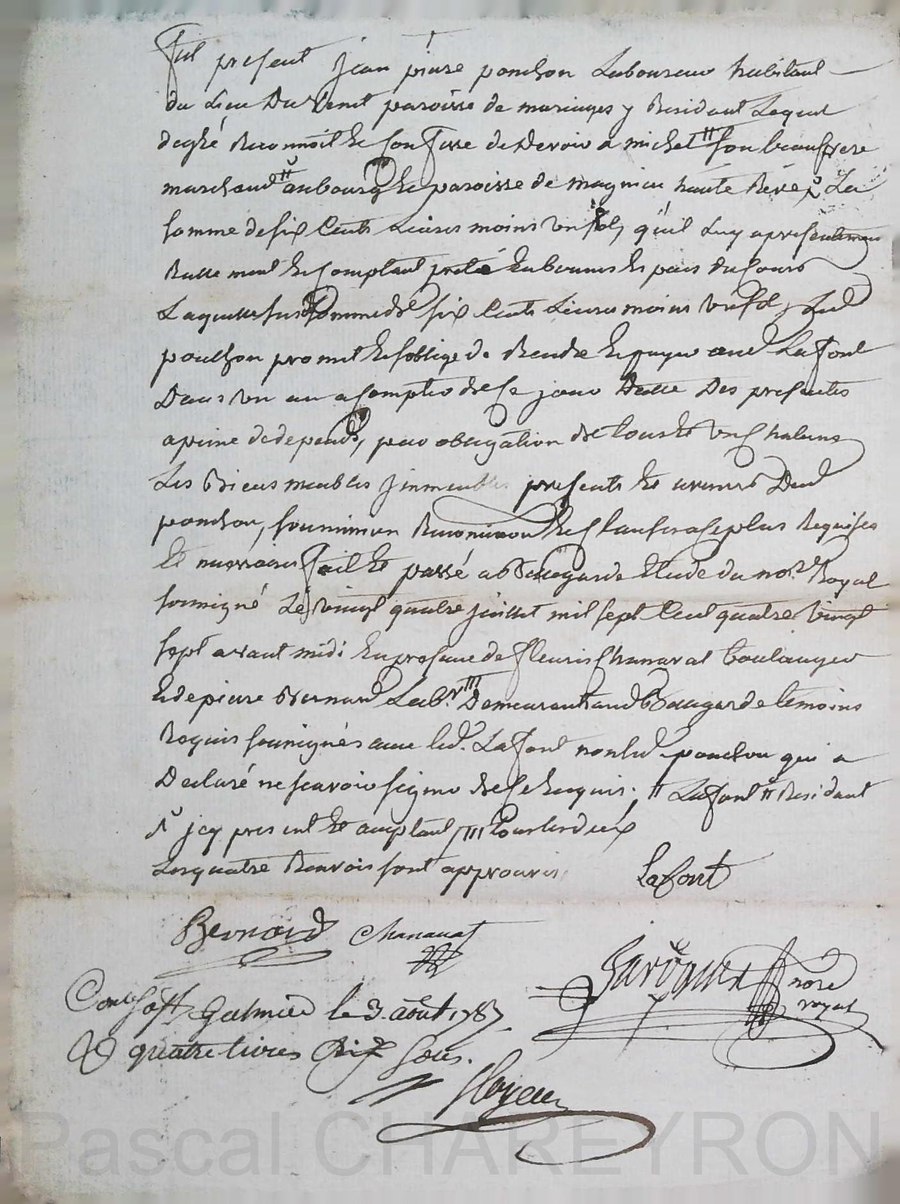 Fut present jean pierre ponchon Laboureur habitant
du Lieu Du Venet paroisse de maringes y Residant Lequel
de gré Reconnoit et Confesse de Devoir a michel son beaufrere
marchand au bourg et paroisse de magnieu haute Rive La
somme de six Cents Livres moins un sol, qu'il Luy a presentement
Reellement et Comptant preté En bonnes Especes du Cours
Laquelle susd somme de six Cents Livres moins un sol, Led
ponchon promet et s'oblige de Rendre et payer aud Lafont
Dans un an a Compter de Ce jour Datte Des presentes
a peine de depends, par obligation de tous et un Chacuns
Les Biens meubles immeubles presents et avenirs Dud
ponchon, soumission Renonciation et Clauses a Ce plus Requises
Et necessaires fait et passé a Bellegarde Etude du nore Royal
soussigné Le vingt quatre juillet mil sept Cent quatre vingt
sept avant midi En presence de fleuris Chanavat boulanger
Et de pierre Bernard Labr Demeurant aud Bellegarde temoins
Requis soussignés avec led. Lafont non led ponchon qui a
Declaré ne scavoir signer de Ce Enquis. Lafont Residant
icy present et acceptant
Les quatre Renvois sont approuvés Lafont
Bernard Chanavat
nore royal
Coné St Galmier le 3. août 1787
quatre livres dix sous.